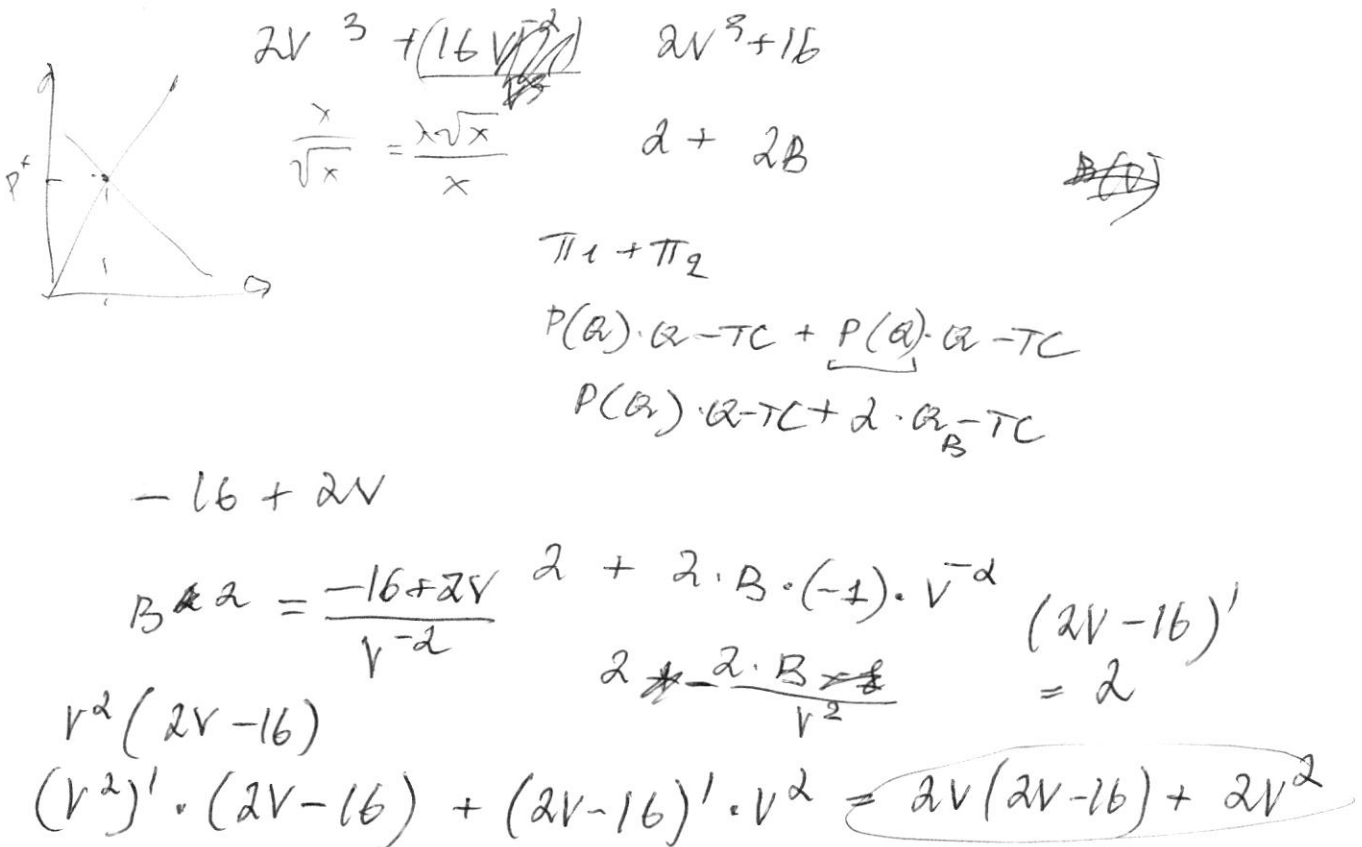 2V³ + (16V 2V³ + 16
x/√x = x√x/x 2 + 2B
P*
Q
π1 + π2
P(Q)·Q - TC + P(Q)·Q - TC
P(Q)·Q - TC + 2·Q_B - TC
- 16 + 2V
B 2 = (-16+2V)/V⁻² 2 + 2·B·(-1)·V⁻²
(2V-16)'
2 - 2·B/V² = 2
V²(2V-16)
(V²)'·(2V-16) + (2V-16)'·V² = 2V(2V-16) + 2V²